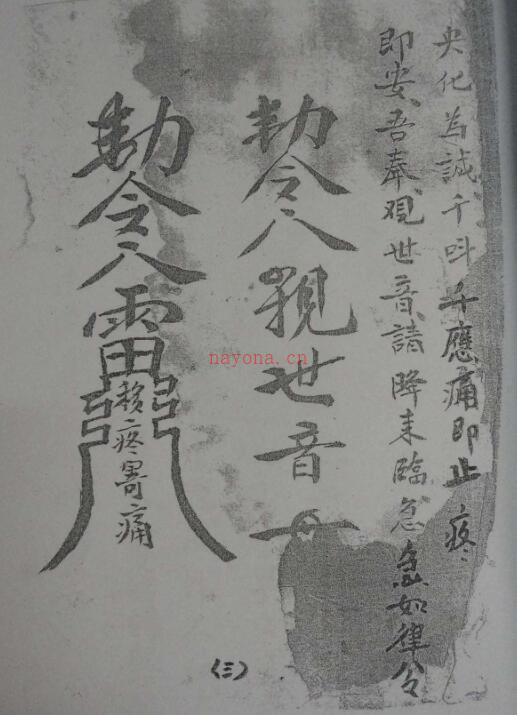 央化為誠千叫千應痛即止疼
即安吾奉观世音請降来臨急急如律令
勅令觀世音
勅令雷
疼寄痛
(三)
nayona.cn